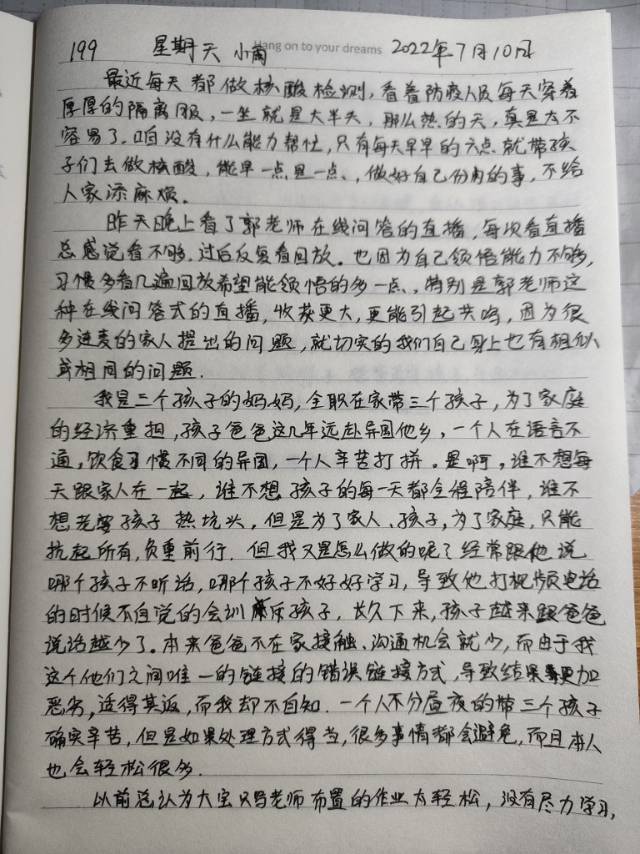 199 星期天 小南 Hang on to your dreams 2022年7月10日
最近每天都做核酸检测,看着防疫人员每天穿着
厚厚的隔离服,一坐就是大半天,那么热的天,真是太不
容易了。咱没有什么能力帮忙,只有每天早早的六点就带孩
子们去做核酸,能早一点是一点、,做好自己份内的事,不给
人家添麻烦。
昨天晚上看了郭老师在线问答的直播,每次看直播
总感觉看不够,过后反复看回放。也因为自己领悟能力不够,
习惯多看几遍回放希望能领悟的多一点、,特别是郭老师这
种在线问答式的直播,收获更大,更能引起共鸣,因为很
多逐麦的家人提出的问题,就切实的我们自己身上也有相似
或相同的问题.
我是三个孩子的妈妈,全职在家带三个孩子,为了家庭
的经济重担,孩子爸爸这几年远赴异国他乡,一个人在语言不
通,饮食习惯不同的异国,一个人辛苦打拼。是啊,谁不想每
天跟家人在一起,谁不想孩子的每一天都全程陪伴,谁不
想老婆孩子热坑头,但是为了家人、孩子,为了家庭,只能
抗起所有,负重前行.但我又是怎么做的呢?经常跟他说
哪个孩子不听话,哪个孩子不好好学习,导致他打视频电话
的时候不自觉的会训斥孩子,长久下来,孩子越来跟爸爸
说话越少了。本来爸爸不在家接触、沟通机会就少,而由于我
这个他们之间唯一的链接的错误链接方式,导致结果更加
恶劣,适得其返,而我却不自知.一个人不分昼夜的带三个孩子
确实辛苦,但是如果处理方式得当,很多事情都会避免,而且本人
也会轻松很多.
以前总认为大宝只写老师布置的作业太轻松,没有尽力学习,